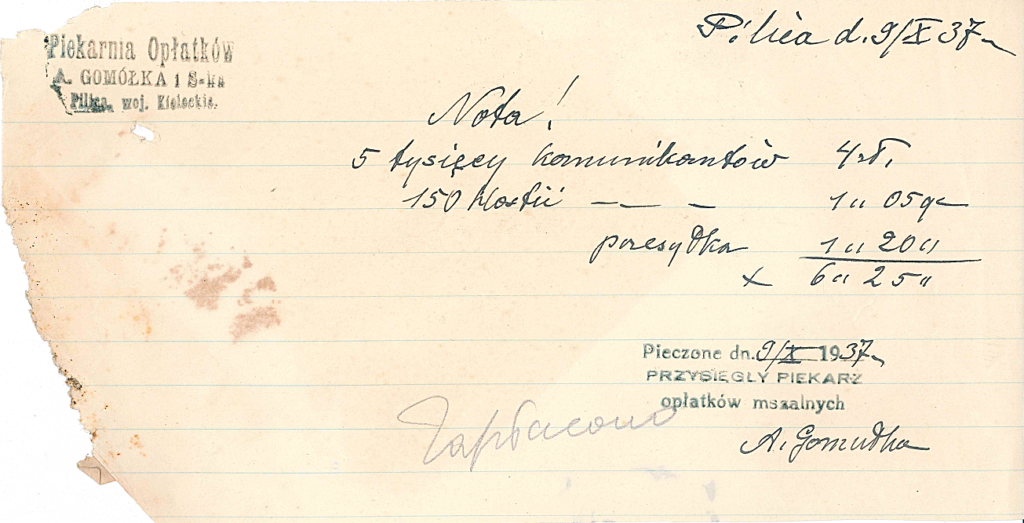 Piekarnia Opłatków
A. GOMÓŁKA i S-ka
Pilica, woj. Kieleckie.
Pilica d. 9/X 37 r.
Nota!
5 tysięcy komunikantów 4 zł.
150 Hostii — — — 1 " 05 gr
przesyłka 1 " 20 "
x 6 " 25 "
Pieczone dn. 9/X 1937 r.
PRZYSIĘGŁY PIEKARZ
opłatków mszalnych
Zapłacono
A. Gomułka